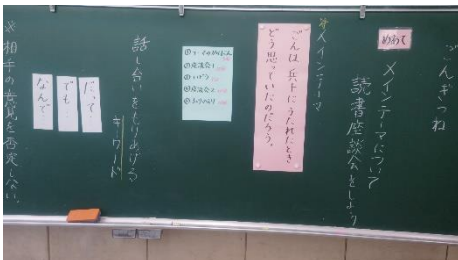 ごんぎつね
めあて
メインテーマについて
読書座談会をしよう
※メインテーマ
ごんは兵十にうたれたとき
どう思っていたのだろう。
②座談会1
④座談会2
⑤ふりかえり
話し合いをもりあげる
キーワード
だって…
でも…
なんで…
※相手の意見を否定しない。